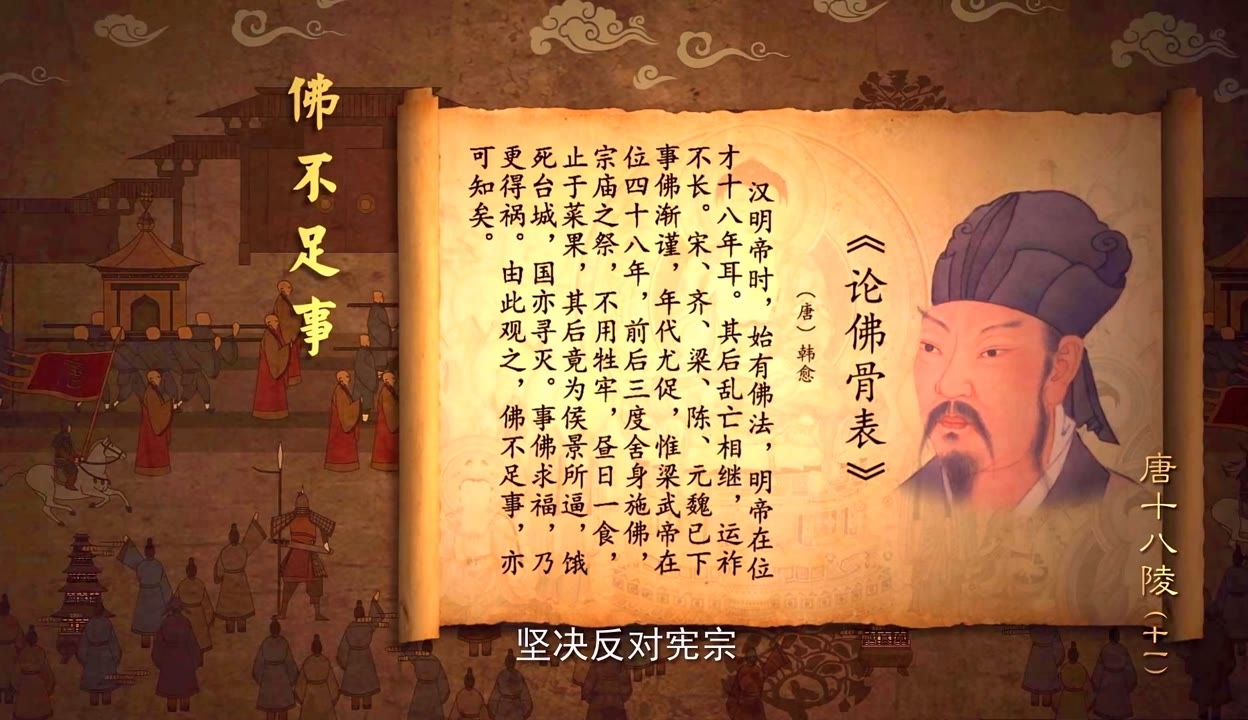 佛不足事
《论佛骨表》
（唐）韩愈
汉明帝时，始有佛法，明帝在位
才十八年耳。其后乱亡相继，运祚
不长。宋、齐、梁、陈、元魏已下
事佛渐谨，年代尤促，惟梁武帝在
位四十八年，前后三度舍身施佛，
宗庙之祭，不用牲牢，昼日一食，
止于菜果，其后竟为侯景所逼，饿
死台城，国亦寻灭。事佛求福，乃
更得祸。由此观之，佛不足事，亦
可知矣。
唐十八陵（十一）
坚决反对宪宗